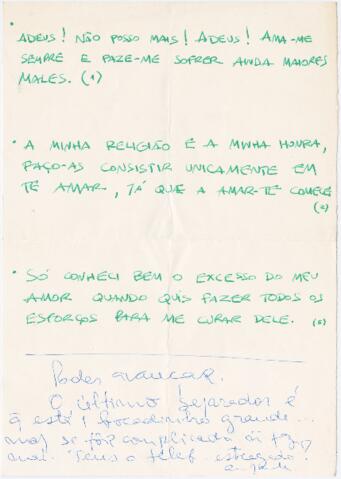 • ADEUS! NÃO POSSO MAIS! ADEUS! AMA-ME
SEMPRE E FAZE-ME SOFRER AINDA MAIORES
MALES. (1)
• A MINHA RELIGIÃO E A MINHA HONRA,
FAÇO-AS CONSISTIR UNICAMENTE EM
TE AMAR, JÁ QUE A AMAR-TE COMECEI
• SÓ CONHECI BEM O EXCESSO DO MEU
AMOR QUANDO QUIS FAZER TODOS OS
ESFORÇOS PARA ME CURAR DELE. (5)
Podes avançar.
O último separador é
q está 1 bocadinho grande...
mas se fôr complicado
mal. Tens o telef. estragado!